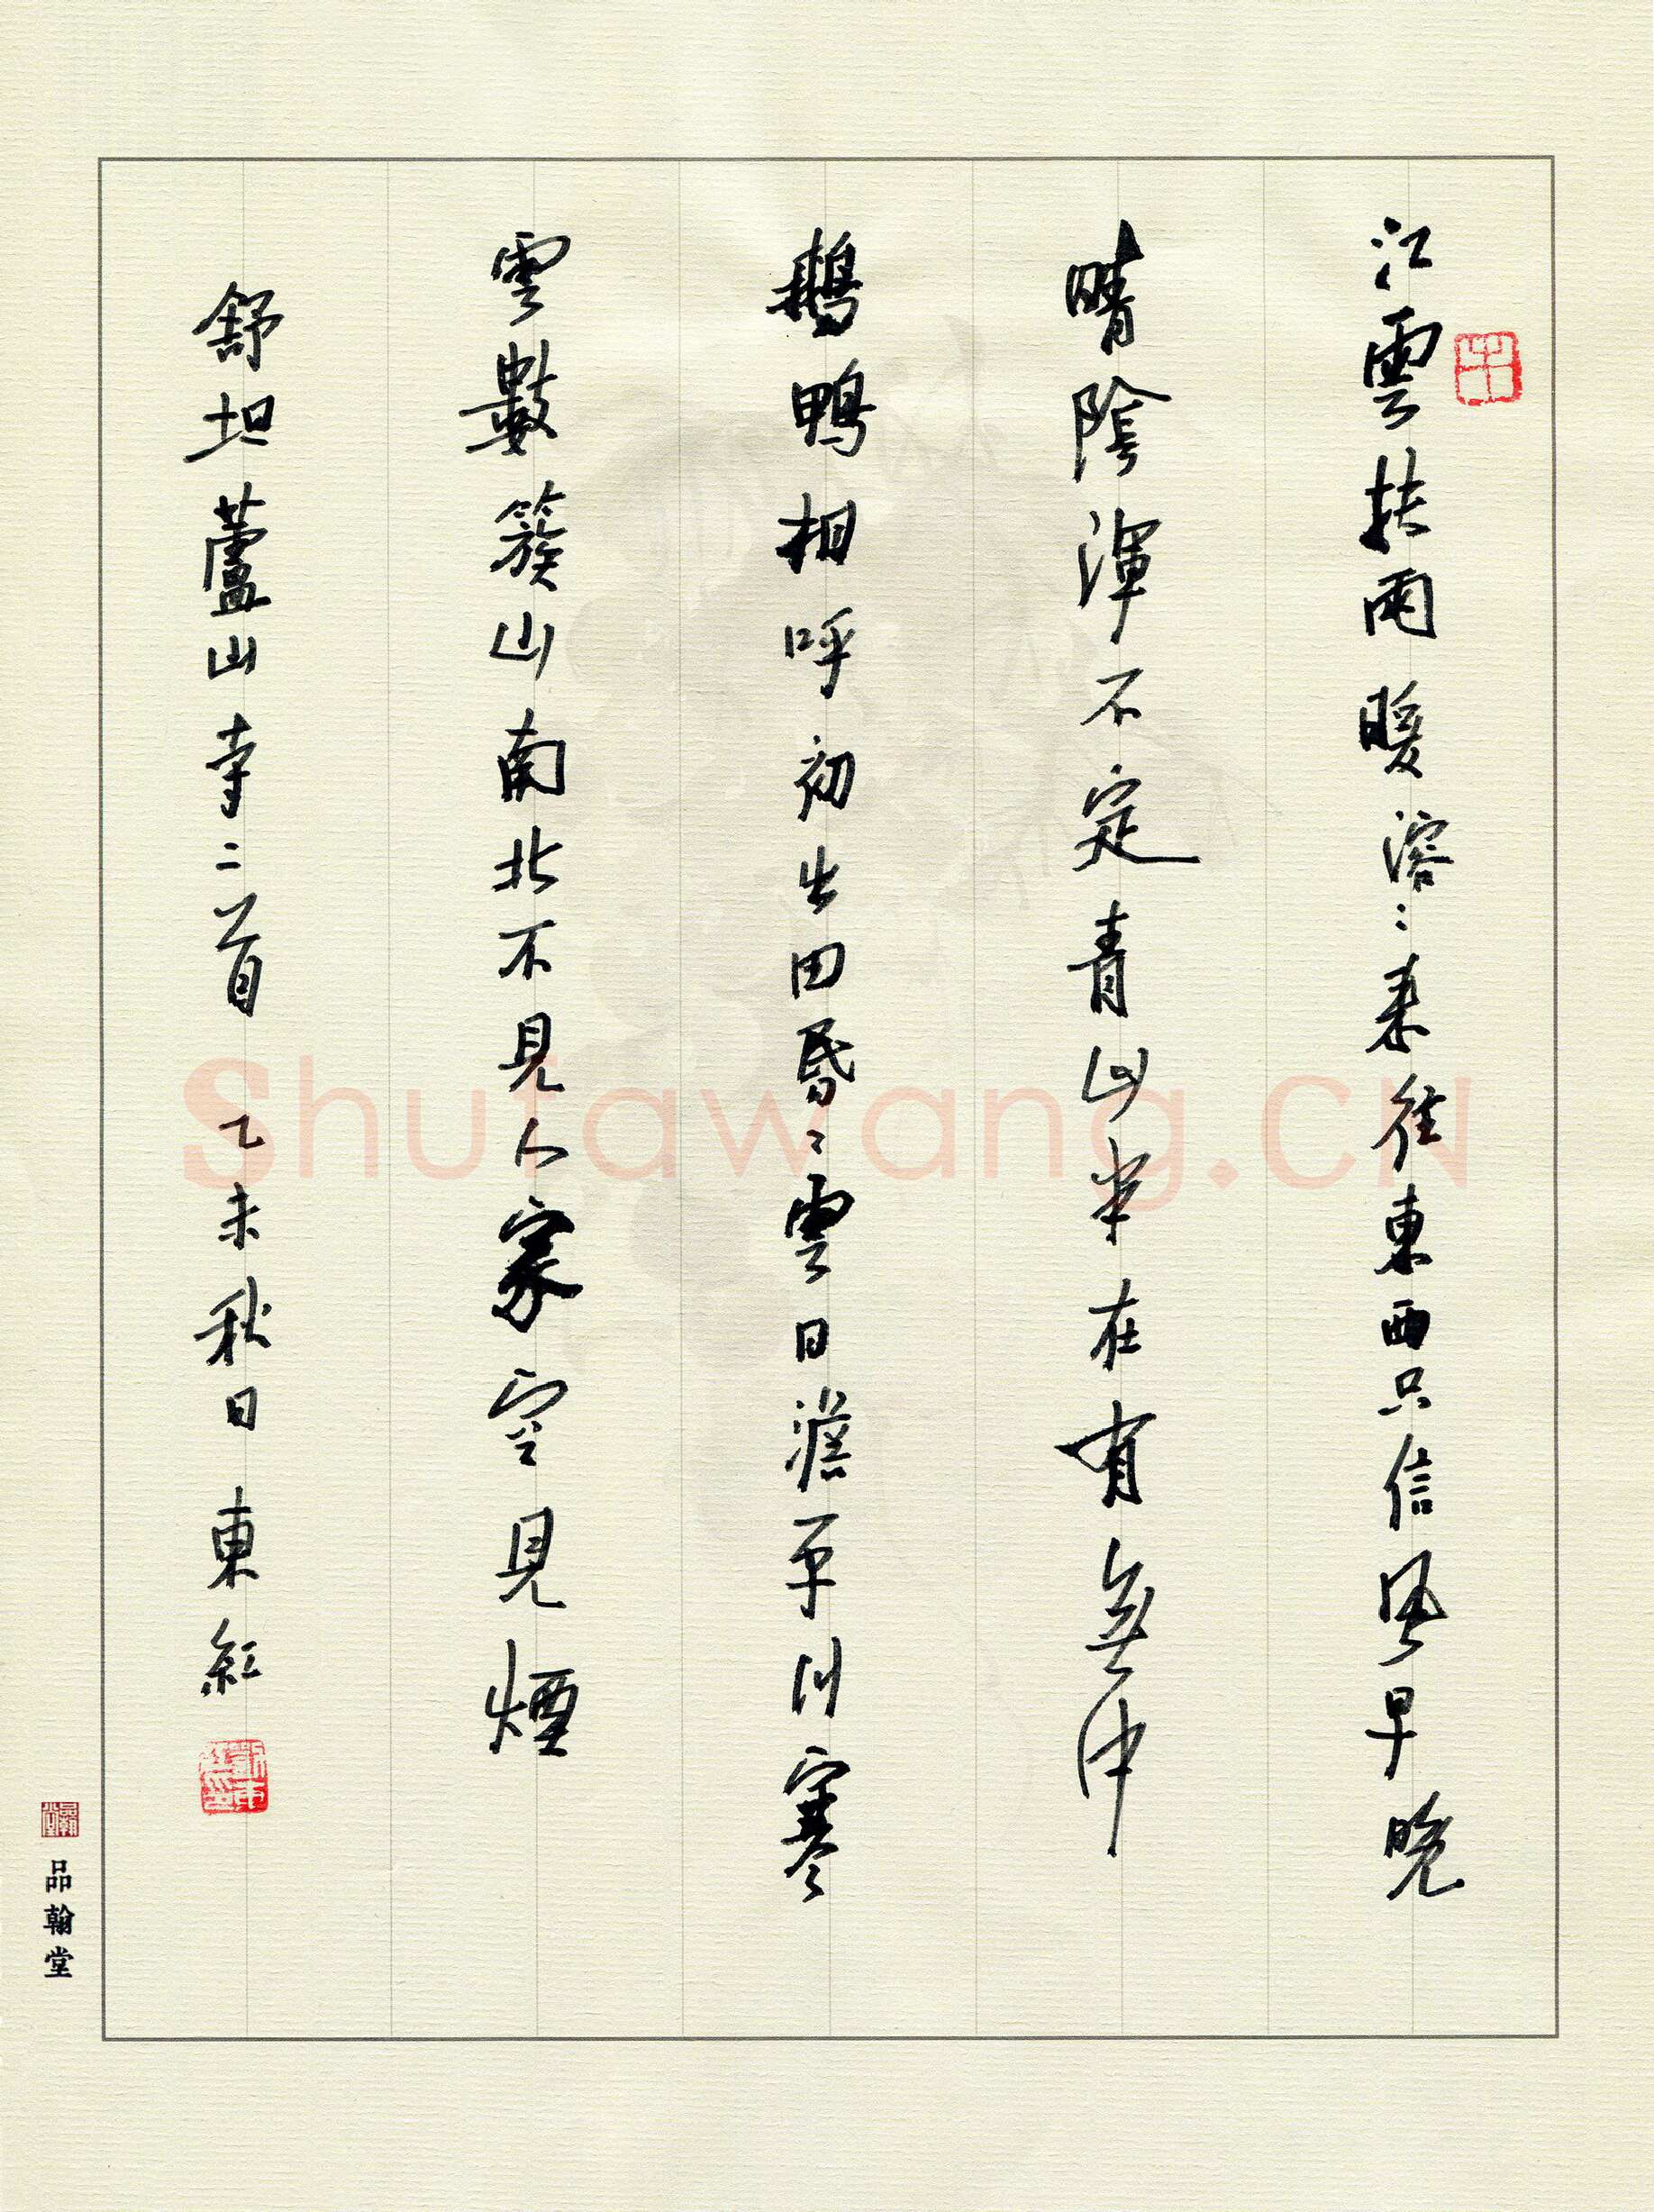 江雲扶雨暖溶〻來往東西只信風早晚
晴陰渾不定青山半在有無中
鵝鴨相呼初出田昏〻雲日澹平川寒
雲數簇山南北不見人家空見煙
舒坦蘆山寺二首 乙未秋日 東紅
品翰堂
Shufawang.CN